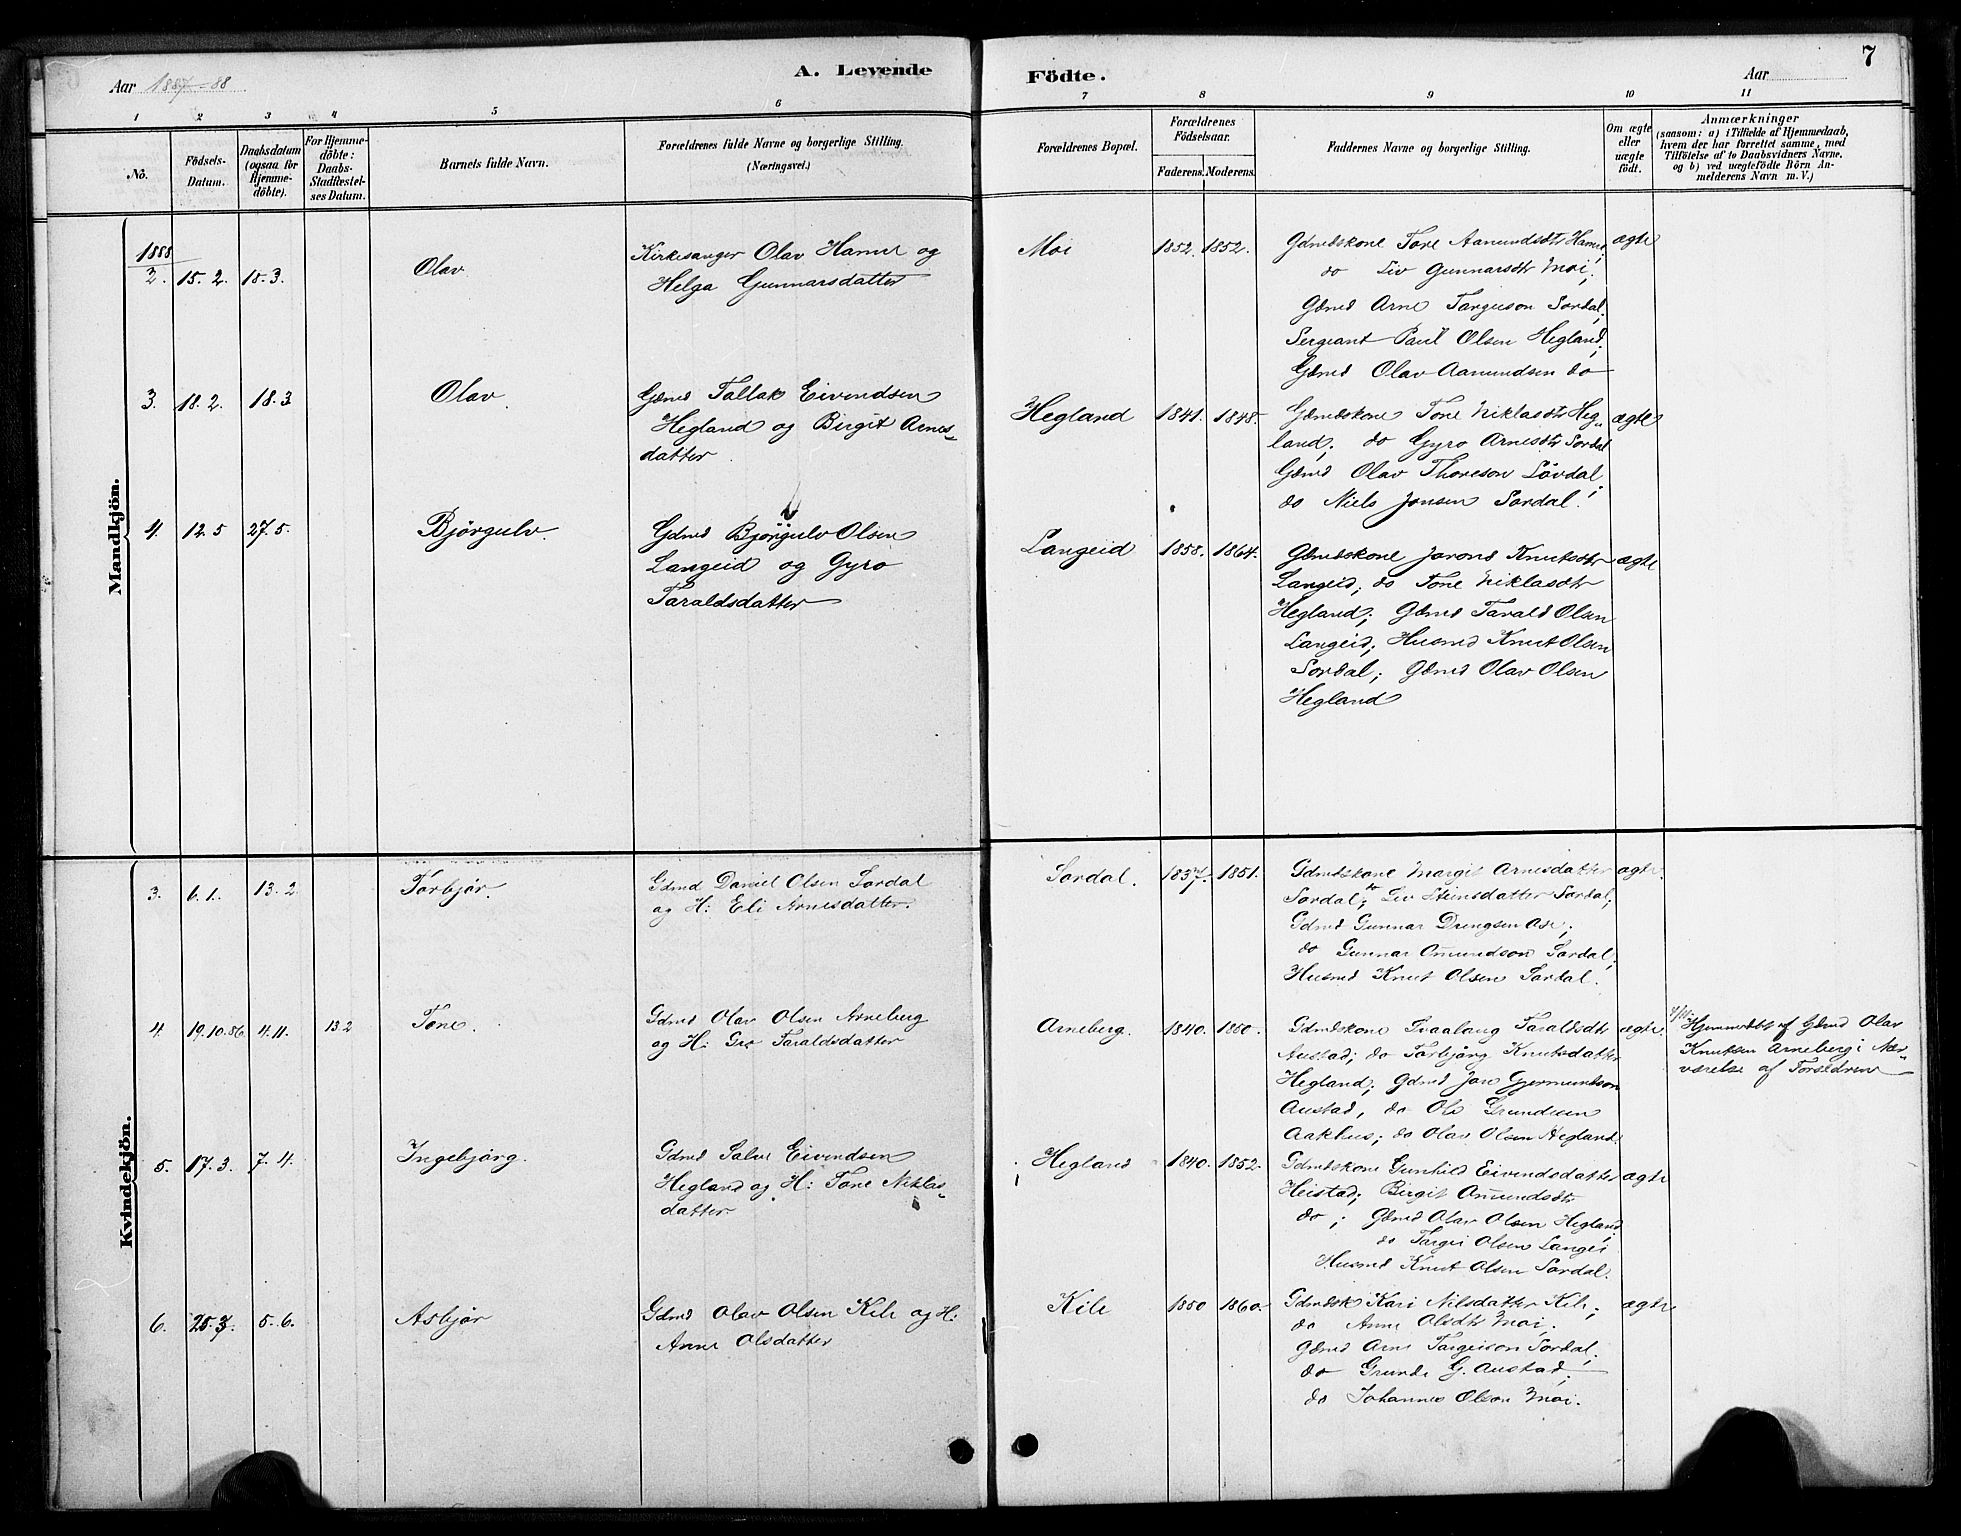 Aar 1887-88
A. Levende
Födte.
Aar
7
1 2 3 4 5 6 7 8 9 10 11
No.
Födsels-
Datum.
Daabsdatum
(ogsaa for
Hjemme-
döbte).
For Hjemme-
döbte:
Daabs-
Stadfæstel-
ses Datum.
Barnets fulde Navn.
Forældrenes fulde Navne og borgerlige Stilling.
(Næringsvei.)
Forældrenes Bopæl.
Forældrenes
Födselsaar.
Faderens. Moderens.
Faddernes Navne og borgerlige Stilling.
Om ægte
eller
uægte
födt.
Anmærkninger
(saasom: a) i Tilfælde af Hjemmedaab,
hvem der har forrettet samme, med
Tilföielse af to Daabsvidners Navne,
og b) ved uægtefödte Börn An-
melderens Navn m. V.)
Mandkjön.
1888
2. 15.2. 18.3.
Olav
Kirkesanger Olav Hamre og
Helga Gunnarsdatter
Moi
1852. 1852.
Gdmdskone Tone Aamundsdtr Hamre;
do Liv Gunnarsdtr Moi;
Gdmd Arne Targuson Sordal;
Sergeant Paul Olsen Hegland;
Gdmd Olav Aamundsen do
ægte
3. 18.2. 18.3
Olav
Gdmd Tallak Eivendsen
Hegland og Birgit Arnes-
datter
Hegland
1841. 1848.
Gdmdskone Tone Niklasdtr Heg-
land; do Gyro Arnesdtr Sordal
Gdmd Olav Thoreson Lövdal;
do Niels Jonsen Sordal.
ægte
4. 12.5 27.5.
Björgulv.
Gdmd Björgulv Olsen
Langeid og Gyro
Taraldsdatter
Langeid
1858. 1864.
Gdmdskone Jorond Knutsdtr
Langeid; do Tone Niklasdtr
Hegland; Gdmd Tarald Olsen
Langeid; Husmd Knut Olsen
Sordal; Gdmd Olav Olsen
Hegland
ægte
Kvindekjön.
3. 6.1. 13.2
Torbjör.
Gdmd Daniel Olsen Sordal
og H: Eli Arnesdatter.
Sordal.
1837. 1851.
Gdmdskone Margit Arnesdatter
Sordal; do Liv Steinsdatter Sordal;
Gdmd Gunnar Drengsen Ose;
do Gunnar Omundson Sordal;
Husmd Knut Olsen Sordal.
ægte.
4. 19.10.86. 4.11. 13.2
Tone.
Gdmd Olav Olsen Arneberg
og H: Gro Taraldsdatter
Arneberg.
1840. 1860.
Gdmdskone Svaalaug Taraldsdtr
Austad; do Torbjörg Knutsdatter
Hegland; Gdmd Jon Gjermundson
Austad, do Ole Grundesen
Aakhus; do Olav Olsen Hegland.
ægte.
Hjemmedöbt af Gdmd Olav
Knutsen Arneberg i Nær-
værelse af Forældrene
5. 17.3. 7.4.
Ingebjörg.
Gdmd Salve Eivendsen
Hegland og H: Tone Niklas-
datter
Hegland
1840. 1852.
Gdmdskone Gunhild Eivendsdatter
Heistad; Birgit Omundsdtr
do; Gdmd Olav Olsen Hegland;
do Targei Olsen Langei
Husmd Knut Olsen Sordal.
ægte
6. 25.3. 5.6.
Asbjör
Gdmd Olav Olsen Kile og H:
Anne Olsdatter
Kile
1850 1860.
Gdmdsk Kari Nilsdatter Kile;
do Anne Olsdtr Moi;
Gdmd Arne Targeison Sordal;
do Grunde G. Austad;
do Johannes Olson Moi.
ægte